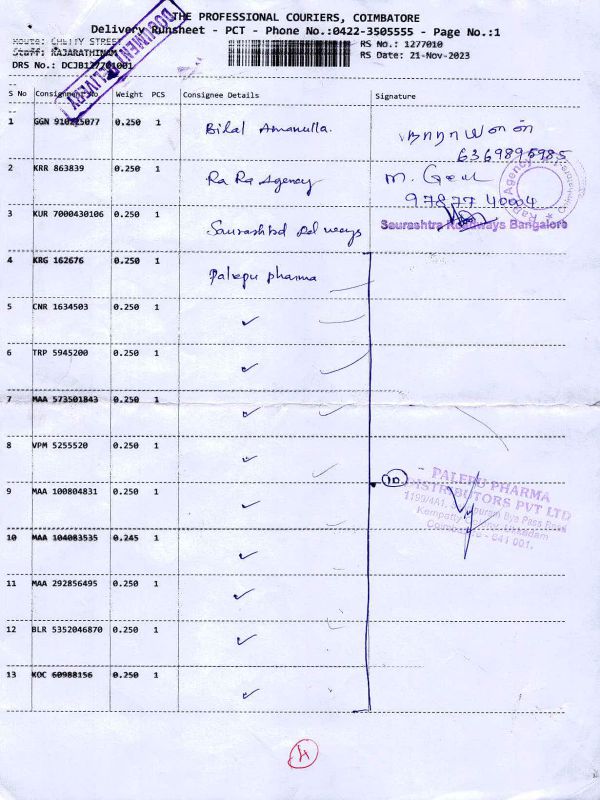 THE PROFESSIONAL COURIERS, COIMBATORE
Delivery Runsheet - PCT - Phone No.:0422-3505555 - Page No.:1
Route: CHETTY STREET
RS No.: 1277010
Staff: RAJARATHINAM
RS Date: 21-Nov-2023
DRS No.: DCJB127701001
DOCUMENT DELIVERY
S No Consignment No Weight PCS Consignee Details Signature
1 GGN 910225077 0.250 1 Bilal Amanulla.
6369896985
2 KRR 863839 0.250 1 Ra Ra Agency
97877 40004
3 KUR 7000430106 0.250 1 Saurashtra Rd ways
Saurashtra Roadways Bangalore
4 KRG 162676 0.250 1 Palepu pharma
5 CNR 1634503 0.250 1 ✓
6 TRP 5945200 0.250 1 ✓
7 MAA 573501843 0.250 1 ✓
8 VPM 5255520 0.250 1 ✓
10
PALEPU PHARMA
DISTRIBUTORS PVT LTD
9 MAA 100804831 0.250 1 ✓
1199/4A1, Bye Pass Road
Ukkadam
Coimbatore - 641 001.
10 MAA 104083535 0.245 1 ✓
11 MAA 292856495 0.250 1 ✓
12 BLR 5352046870 0.250 1 ✓
13 KOC 60988156 0.250 1 ✓
4